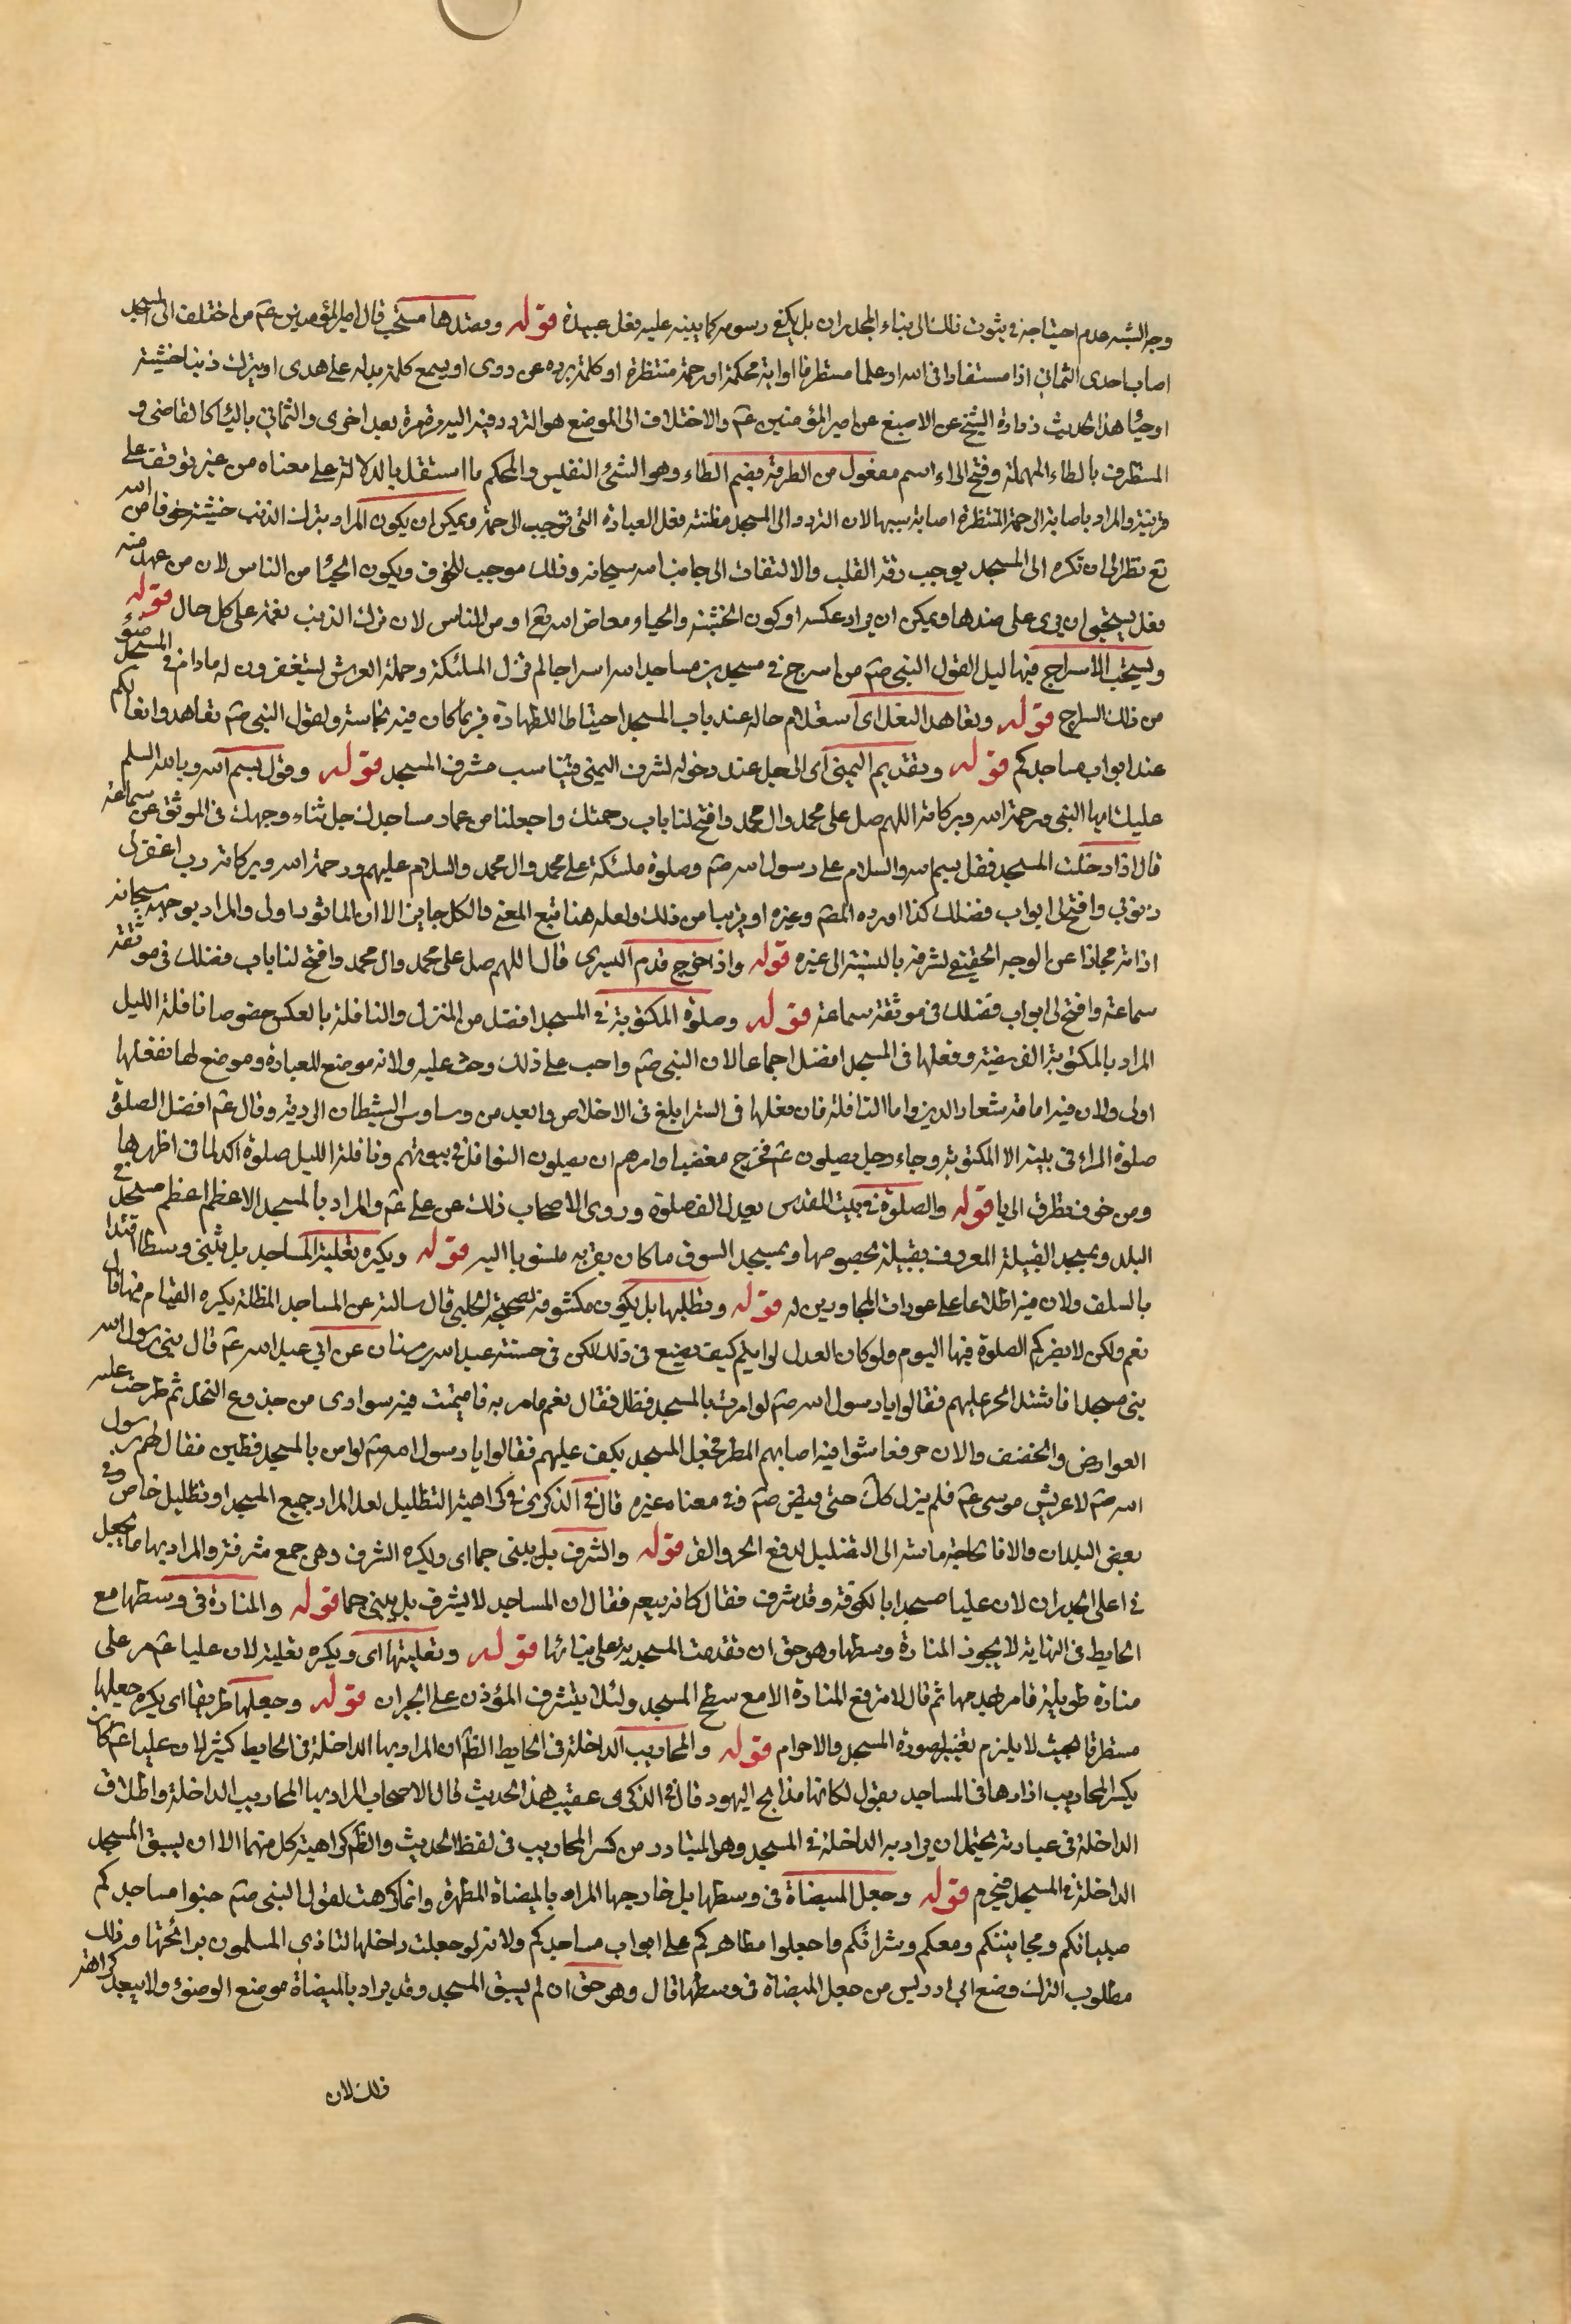 وجه الشبه عدم احتياجه في ثبوت ذلك الى بناء الجدران بل يكفي رسومه كما ينبه عليه فعل عبيدة قوله وقصدها مستحب قال امير المؤمنين عم من اختلف الى المسجد
اصاب احدى الثماني اخا مستفادا في الله او علما مستطرفا او اية محكمة او رحمة منتظرة او كلمة ترده عن ردى او يسمع كلمة تدله على هدى او يترك ذنبا خشية
او حياء هذا الحديث رواه الشيخ عن الاصبغ عن امير المؤمنين عم والاختلاف الى الموضع هو التردد فيه اليه مرة بعد اخرى والثماني بالياء كالقاضي و
المستطرف بالطاء المهملة وفتح الراء اسم مفعول من الطرفة بضم الطاء وهو الشئ النفيس والمحكم ما استقل بالدلالة على معناه من غير توقف على
قرينة والمراد باصابة الرحمة المنتظرة اصابة سببها لان التردد الى المسجد مظنة فعل العبادة التي توجب الرحمة ويمكن ان يكون المراد بترك الذنب خشية خوفا من الله
تع نظرا الى ان تكرره الى المسجد يوجب رقة القلب والالتفات الى جانب الله سبحانه وذلك موجب للخوف ويكون الحياء من الناس لان من عهد منه
فعل يستحيي ان يرى على ضدها ويمكن ان يراد عكسه او كون الخشية والحياء معا من الله تع او من الناس لان ترك الذنب نعمة على كل حال قوله
ويستحب الاسراج فيها ليلا لقول النبي صم من اسرج في مسجد من مساجد الله سراجا لم تزل الملئكة وحملة العرش يستغفرون له ما دام في المسجد ضوء
من ذلك السراج قوله وتعاهد النعل اى استعلام حاله عند باب المسجد احتياطا للطهارة فربما كان فيه نجاسة ولقول النبي صم تعاهدوا نعالكم
عند ابواب مساجدكم قوله وتقديم اليمنى اى الرجل عند دخوله لشرف اليمنى فيناسب شرف المسجد قوله وقول بسم الله وبالله السلم
عليك ايها النبي ورحمة الله وبركاته اللهم صل على محمد وال محمد وافتح لنا باب رحمتك واجعلنا من عمار مساجدك جل ثناء وجهك في الموثق عن سماعة
قال اذا دخلت المسجد فقل بسم الله والسلام على رسول الله صم وصلوة ملئكته على محمد وال محمد والسلام عليهم ورحمة الله وبركاته رب اغفر لي
ذنوبي وافتح لي ابواب فضلك كذا اورده المصم وغيره او قريبا من ذلك ولعله هنا تبع المعنى والكل جايز الا ان الماثور اولى والمراد بوجهه سبحانه
ذاته مجازا عن الوجه الحقيقي لشرفه بالنسبة الى غيره قوله واذا خرج قدم اليسرى قال اللهم صل على محمد وال محمد وافتح لنا باب فضلك في موثقة
سماعة وافتح لي ابواب فضلك في موثقة سماعة قوله وصلوة المكتوبة في المسجد افضل من المنزل والنافلة بالعكس خصوصا نافلة الليل
المراد بالمكتوبة الفريضة وفعلها في المسجد افضل اجماعا لان النبي صم واظب على ذلك وحث عليه ولانه موضع للعبادة وموضع لها ففعلها
اولى ولان فيه اقامة شعار الدين واما النافلة فان فعلها في الستر ابلغ في الاخلاص وابعد من وساوس الشيطان الردية وقال عم افضل الصلوة
صلوة المراء في بيته الا المكتوبة وجاء رجل يصلون عم فخرج مغضبا وامرهم ان يصلون النوافل في بيوتهم ونافلة الليل صلوة اكد لما في اظهارها
ومن خوف تطرق الريا قوله والصلوة في بيت المقدس تعدل الف صلوة وروى الاصحاب ذلك عن علي عم والمراد بالمسجد الاعظم اعظم مسجد في
البلد وبمسجد القبيلة المعروف بقبيلة بخصوصها وبمسجد السوق ما كان بقربه منسوبا اليه قوله ويكره تعلية المساجد بل تبنى وسطا اقتداء
بالسلف ولان فيه اطلاعا على عورات المجاورين له قوله وتظليلها بل يكون مكشوفة لصحيحة الحلبي قال سالته عن المساجد المظللة يكره القيام فيها قال
نعم ولكن لا يضركم الصلوة فيها اليوم ولو كان العدل لرايتم كيف يصنع في ذلك لكن في حسنة عبد الله بن سنان عن ابي عبد الله عم قال بنى رسول الله
بنى مسجدا فاشتد الحر عليهم فقالوا يا رسول الله صم لو امرت بالمسجد فظلل فقال نعم فامر به فاقيمت فيه سوارى من جذوع النخل ثم طرحت عليه
العوارض والخصف والاذخر فعاشوا فيه اصابهم المطر فجعل المسجد يكف عليهم فقالوا يا رسول الله صم لو امر بالمسجد فطين فقال لهم رسول
الله صم لا عريش موسى عم فلم يزل كك حتى قبض صم وفي معناه غيره قال في الذكرى في كراهية التظليل لعل المراد جميع المسجد او تظليل خاص وفي
بعض البلدان والا فالحاجة ماسة الى التظليل لدفع الحر والقر قوله والشرف بل يبنى جما اى ويكره الشرف وهى جمع شرفة والمراد بها ما يجعل
في اعلى الجدران لان عليا مسجدا بالكوفة وقد شرف فقال كانه بيعه فقال ان المساجد لا يشرف بل يبنى جما قوله والمنارة في وسطها مع
الحايط في النهاية لا يجوز المنارة وسطها وهو حق ان تقدمت المسجدية على بنائها قوله وتعليتها اى ويكره تعليته لان عليا عم مر على
منارة طويلة فامر بهدمها ثم قال لا ترفع المنارة الا مع سطح المسجد ولئلا يتشرف المؤذن على الجيران قوله وجعلها طريقا اى يكره جعلها
مستطرقا بحيث لا يلزم تغيير لصورة المسجد والا حرام قوله والمحاريب الداخلة في الحايط الظم ان المراد بها الداخلة في الحايط كثيرا لان عليا عم كان
يكسر المحاريب اذا راها في المساجد يقول لكانها مذابح اليهود قال في الذكرى عقيب هذا الحديث قال الاصحاب المراد بها المحاريب الداخلة واطلاق
الداخلة في عبارته يحتمل ان يراد به الداخلة في المسجد وهو المتبادر من كسر المحاريب في لفظ الحديث والظم كراهية كل منهما الا ان يسبق المسجد
الداخلة في المسجد فيحرم قوله وجعل الميضاة في وسطها بل خارجها المراد بالميضاة المطهرة وانما كرهت لقول النبي صم جنبوا مساجدكم
صبيانكم ومجانينكم وبيعكم وشراءكم واجعلوا مطاهركم على ابواب مساجدكم ولانه لو جعلت داخلها لتاذى المسلمون برائحتها وذلك
مطلوب الترك ومنع ابن ادريس من جعل الميضاة في وسطها قال وهو حق ان لم يسبق المسجد وقد يراد بالميضاة موضع الوضوء ولا يبعد كراهة
ذلك لان